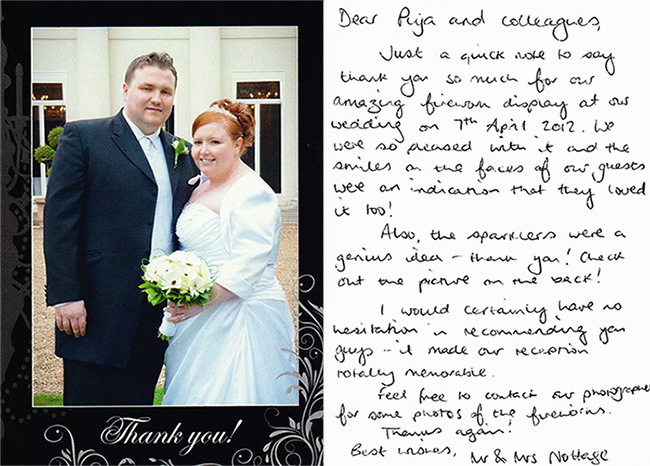 Thank you!
Dear Pirja and colleagues,
Just a quick note to say
thank you so much for our
amazing firework display at our
wedding on 7th April 2012. We
were so pleased with it and the
smiles on the faces of our guests
were an indication that they loved
it too!
Also, the sparklers were a
genius idea - thank you! Check
out the picture on the back!
I would certainly have no
hesitation in recommending you
guys - it made our reception
totally memorable.
Feel free to contact our photographer
for some photos of the fireworks.
Thanks again!
Best wishes, Mr & Mrs Nottage